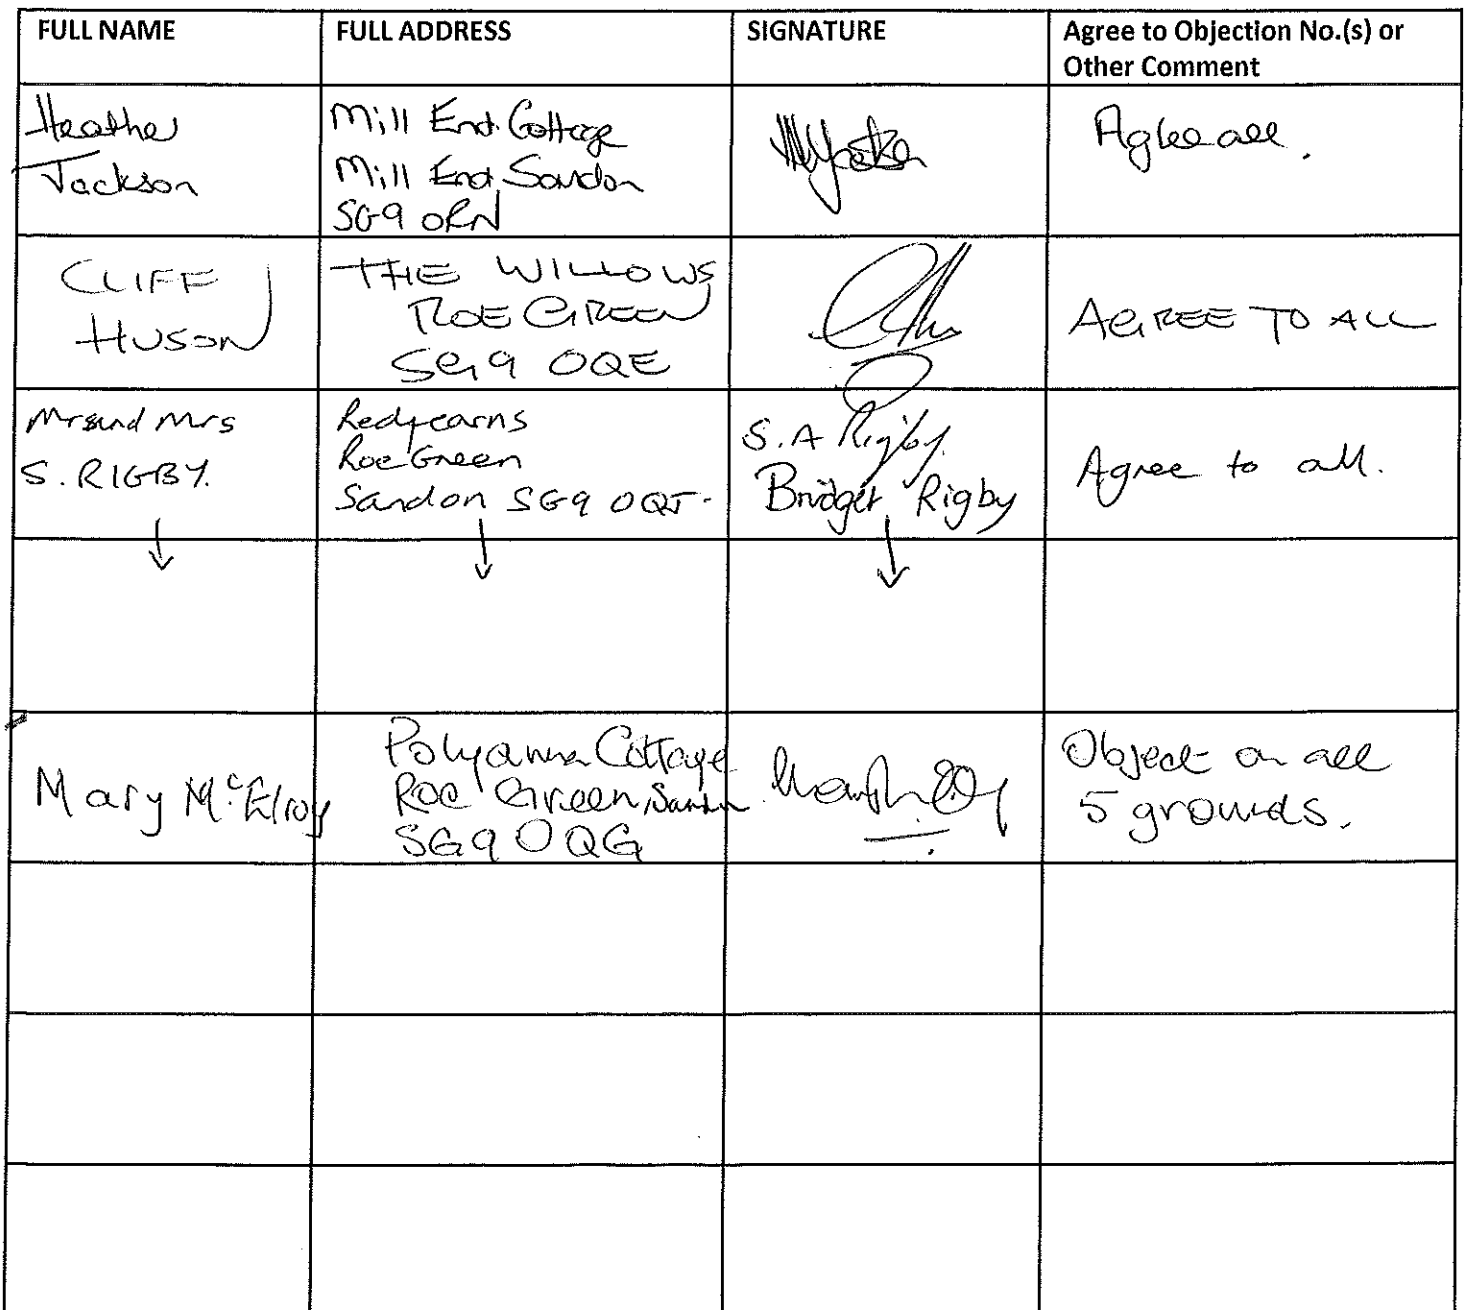 FULL NAME
FULL ADDRESS
SIGNATURE
Agree to Objection No.(s) or
Other Comment
Heather
Jackson
Mill End Cottage
Mill End, Sandon
SG9 0RN
Agree all.
CLIFF
HUSON
THE WILLOWS
ROE GREEN
SG9 0QE
AGREE TO ALL
Mr and Mrs
S. RIGBY.
Redfearns
Roe Green
Sandon SG9 0QJ.
S. A Rigby.
Bridget Rigby
Agree to all.
Mary McElroy
Polyanna Cottage
Roe Green, Sandon
SG9 0QG
Object on all
5 grounds.